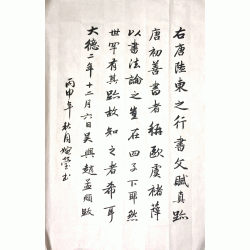 右唐陸柬之行書文賦真跡
唐初善書者稱歐虞褚薛
以書法論之豈在四子下耶然
世罕有其跡故知之者希耳
大德二年十二月六日吳興趙孟頫跋
丙申年秋月